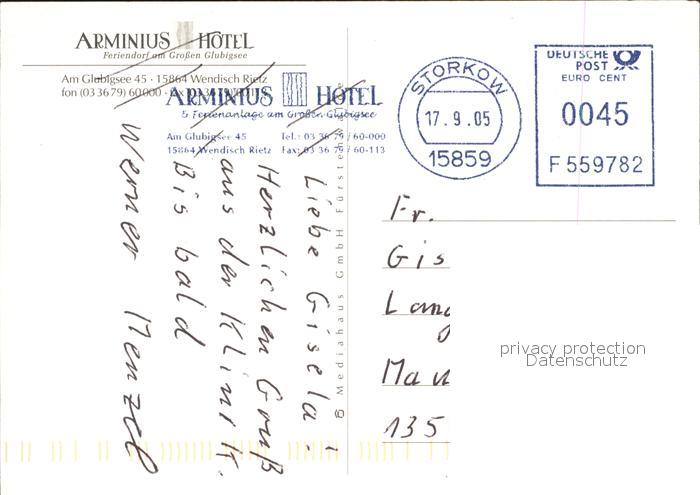 ARMINIUS HOTEL
Feriendorf am Großen Glubigsee
Am Glubigsee 45 · 15864 Wendisch Rietz
fon (033679) 60000 ·
ARMINIUS HOTEL
& Ferienanlage am Großen Glubigsee
Am Glubigsee 45 Tel.: 03 36 79 / 60-000
15864 Wendisch Rietz Fax: 03 36 79 / 60-113
STORKOW
17.9.05
15859
DEUTSCHE POST
EURO CENT
0045
F 559782
Liebe Gisela!
Herzlichen Gruß
aus der Klinik.
Bis bald
Werner Menzel
© Mediahaus GmbH
Fr.
Gis
Lang
Mau
135
privacy protection
Datenschutz